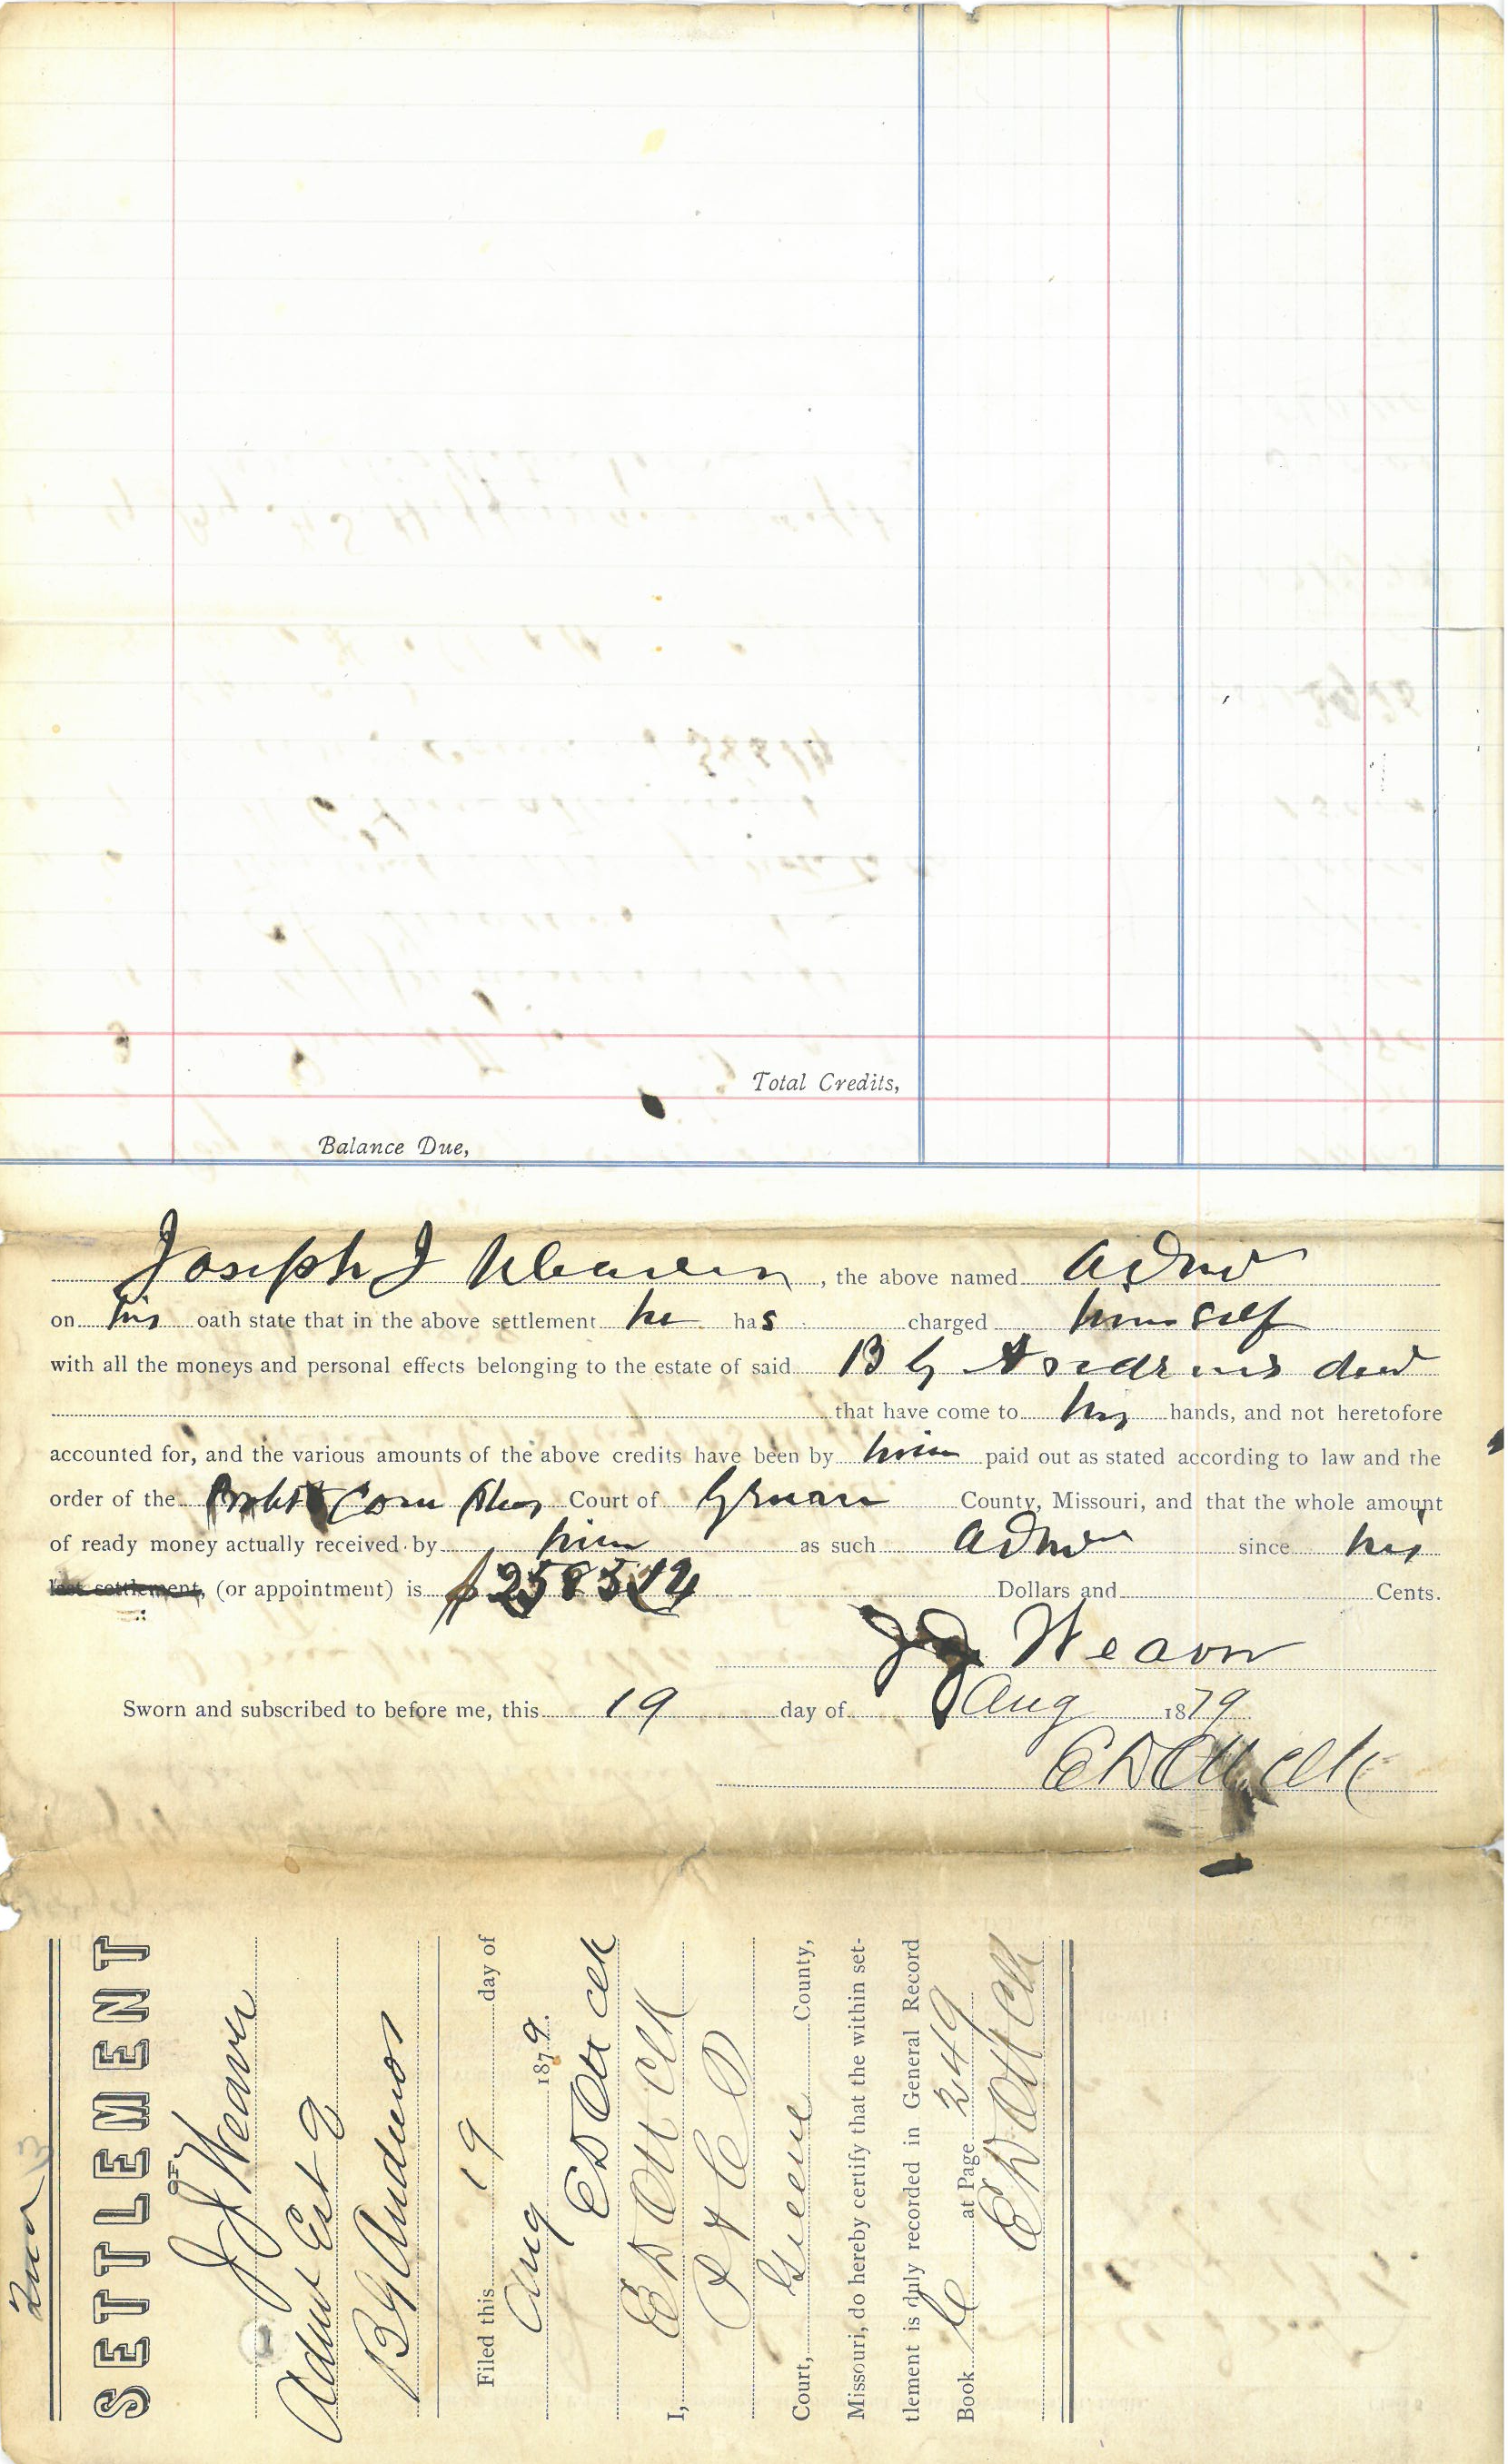 Total Credits,
Balance Due,
Joseph J Weaver, the above named Admr
on his oath state that in the above settlement he has charged himself
with all the moneys and personal effects belonging to the estate of said B G Andrews decd
that have come to his hands, and not heretofore
accounted for, and the various amounts of the above credits have been by him paid out as stated according to law and the
order of the Probt & Com Pleas Court of Greene County, Missouri, and that the whole amount
of ready money actually received by him as such Admr since his
last settlement, (or appointment) is $ Dollars and Cents.
J J Weaver
Sworn and subscribed to before me, this 19 day of Aug 1879
E D Ott Clk
SETTLEMENT
OF
J J Weaver
Admr Est of
B G Andrews
Filed this 19 day of
Aug 1879.
E D Ott Clk
I, E D Ott Clk
P & C P
Court, Greene County,
Missouri, do hereby certify that the within set-
tlement is duly recorded in General Record
Book C at Page 249
E D Ott Clk